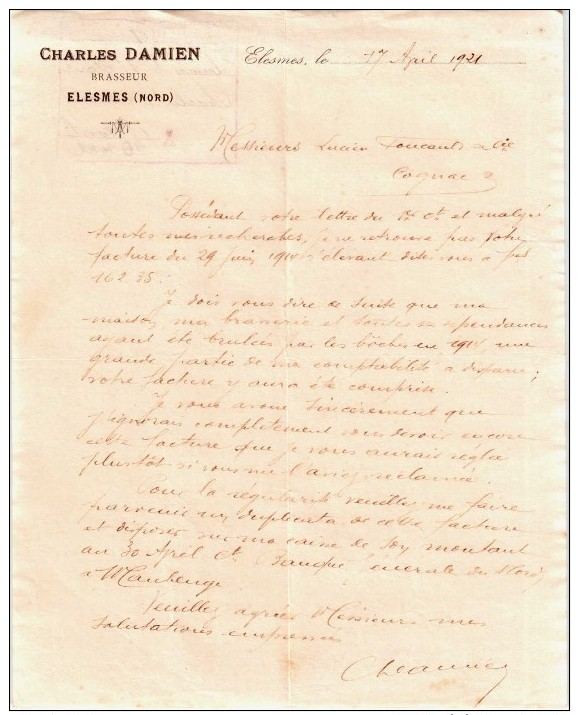 CHARLES DAMIEN
BRASSEUR
ELESMES (NORD)
Elesmes, le 17 April 1921
Messieurs Lucien Foucauld & Cie
Cognac
Possédant votre lettre du Ct et malgré
toutes mes recherches, je ne retrouve pas votre
facture du 29 juin 1914 s'élevant dites vous a
162.35.
Je dois vous dire de suite que ma
maison, ma brasserie et toutes ses dependances
ayant été brulées par les bôches en 1914 une
grande partie de ma comptabilité a disparu;
votre facture y aura été comprise.
Je vous avoue sincèrement que
j'ignorais complètement vous devoir encore
cette facture que je vous aurais réglée
plustôt si vous me l'aviez réclamée.
Pour la régularité veuillez me faire
parvenir un duplicata de cette facture
et disposer sur ma caisse de son montant
au 30 April Ct Banque Générale du Nord
a Maubeuge.
Veuillez agréer Messieurs mes
salutations empressées